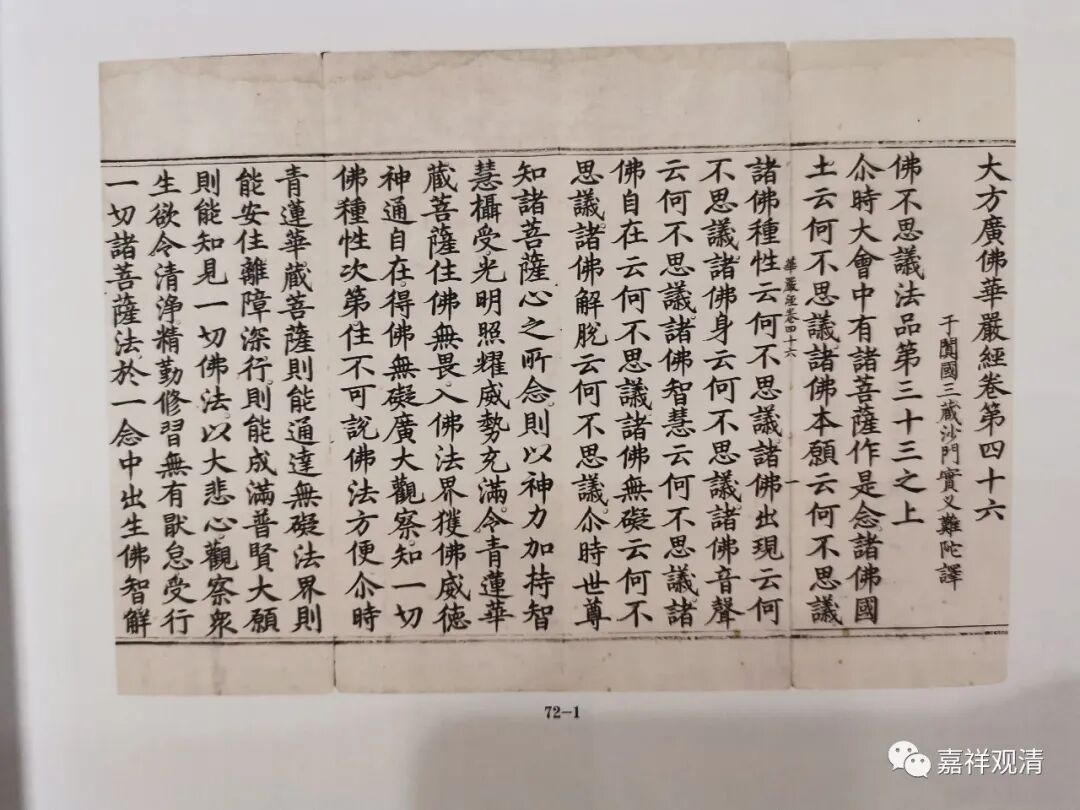 大方廣佛華嚴經卷第四十六
于闐國三藏沙門實叉難陀譯
佛不思議法品第三十三之上
尒時大會中有諸菩薩作是念諸佛國
土云何不思議諸佛本願云何不思議
華嚴經卷四十六 一
諸佛種性云何不思議諸佛出現云何
不思議諸佛身云何不思議諸佛音聲
云何不思議諸佛智慧云何不思議諸
佛自在云何不思議諸佛無礙云何不
思議諸佛解脫云何不思議尒時世尊
知諸菩薩心之所念則以神力加持智
慧攝受光明照耀威勢充滿令青蓮華
藏菩薩住佛無畏入佛法界獲佛威德
神通自在得佛無礙廣大觀察知一切
佛種性次第住不可說佛法方便尒時
青蓮華藏菩薩則能通達無礙法界則
能安住離障深行則能成滿普賢大願
則能知見一切佛法以大悲心觀察衆
生欲令清淨精勤修習無有厭怠受行
一切諸菩薩法於一念中出生佛智解
72-1
嘉祥观清